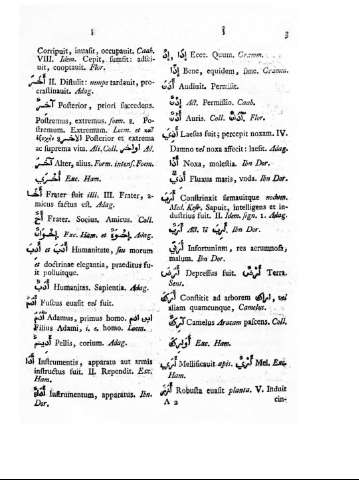 ا ا 3
Corripuit, invasit, occupavit. Caab.
VIII. Idem. Cepit, sumsit: adsci-
vit, cooptavit. Flor.
أخر II. Distulit: nempe tardavit, pro-
crastinavit. Adag.
آخر Posterior, priori succedens.
Postremus, extremus. foem. 2. Po-
stremum. Extremum. Locm. et
الآخر Posterior et extrema
ac suprema vita. Ali. Coll. أواخر Al.
آخر Alter, alius. Form. intens. Foem.
أخرى Exc. Ham.
أخا Frater fuit alii. III. Frater, a-
micus factus est. Adag.
أخ Frater. Socius, Amicus. Coll.
إخوان Exc. Ham. et إخوة Adag.
أدب et أدب Humanitate, seu morum
et doctrinae elegantia, praeditus fu-
it polluitque.
أدب Humanitas. Sapientia. Adag.
أدم Fuscus evasit vel fuit.
آدم Adamus, primus homo. ابن آدم
Filius Adami, i. e. homo. Locm.
أديم Pellis, corium. Adag.
أدا Instrumentis, apparatu aut armis
instructus fuit. II. Rependit. Exc.
Ham.
أداة Instrumentum, apparatus. Ibn.
Dor.
إذ, إذا Ecce. Quum. Gramm.
إذا Bene, equidem, sane. Gramm.
أذن Audiuit. Permisit.
إذن Act. Permissio. Caab.
أذن Auris. Coll. آذان Flor.
أذي Laesus fuit; percepit noxam. IV.
Damno vel noxa affecit: laesit. Adag.
أذا Noxa, molestia. Ibn Dor.
آذي Fluxus maris, unda. Ibn Dor.
أرب Constrinxit firmauitque nodum.
Med. Kesr. Sapuit, intelligens et in-
dustrius fuit. II. Idem. sign. 1. Adag.
أرب Act. أرب Ibn Dor.
أرب Infortunium, res aerumnosa,
malum. Ibn Dor.
أرض Depressus fuit. أرض Terra.
Sent.
أرك Constitit ad arborem أراك, vel
aliam quamcunque, Camelus.
Camelus Aracam pascens. Coll.
أوارك Exc. Ham.
أري Mellificauit apis. أري Mel. Exc.
Ham.
Robusta evasit planta. V. Induit
A 2 cin-